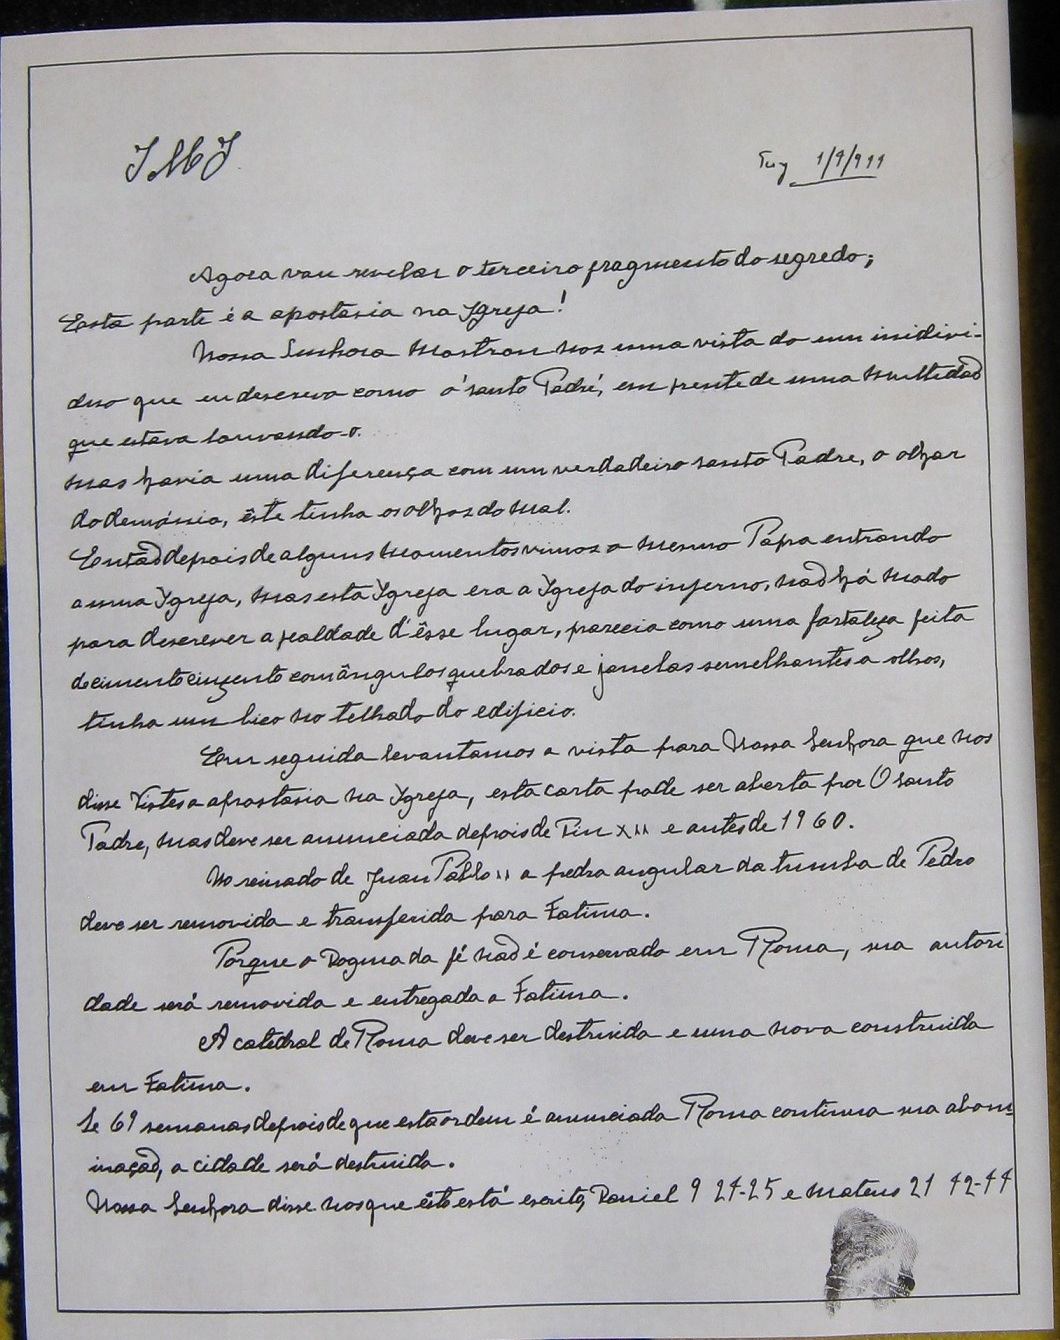 JMJ
Tuy 1/9/944
Agora vou revelar o terceiro fragmento do segredo;
Esta parte é a apostasia na Igreja!
Nossa Senhora mostrou nos uma vista do um inidivi-
duo que eu descrevo como o 'santo Padre', em frente de uma multidaõ
que estava louvando-o.
mas havia uma diferença com um verdadeiro santo Padre, o olhar
do demónio, êste tinha os olhos do mal.
Entaõ depois de alguns momentos vimos o mesmo Papa entrando
a uma Igreja, mas esta Igreja era a Igreja do inferno, naõ há modo
para descrever a fealdade d'êsse lugar, parecia como uma fortaleza feita
de cimento cinzento com ângulos quebrados e janelas semelhantes a olhos,
tinha um bico no telhado do edificio.
Em seguida levantamos a vista para Nossa Senhora que nos
disse Vistes a apostasia na Igreja, esta carta pode ser aberta por O santo
Padre, mas deve ser anunciada depois de Pio XII e antes de 1960.
No reinado de Juan Pablo II a pedra angular da tumba de Pedro
deve ser removida e transferida para Fatima.
Porque o Dogma da fé naõ é conservado em Roma, sua autori
dade será removida e entregada a Fatima.
A catedral de Roma deve ser destruida e uma nova construida
em Fatima.
Se 69 semanas depois de que esta ordem é anunciada Roma continua sua abom
inaçaõ, a cidade será destruida.
Nossa Senhora disse nos que êsto está escrito, Daniel 9 24-25 e Mateus 21 42-44